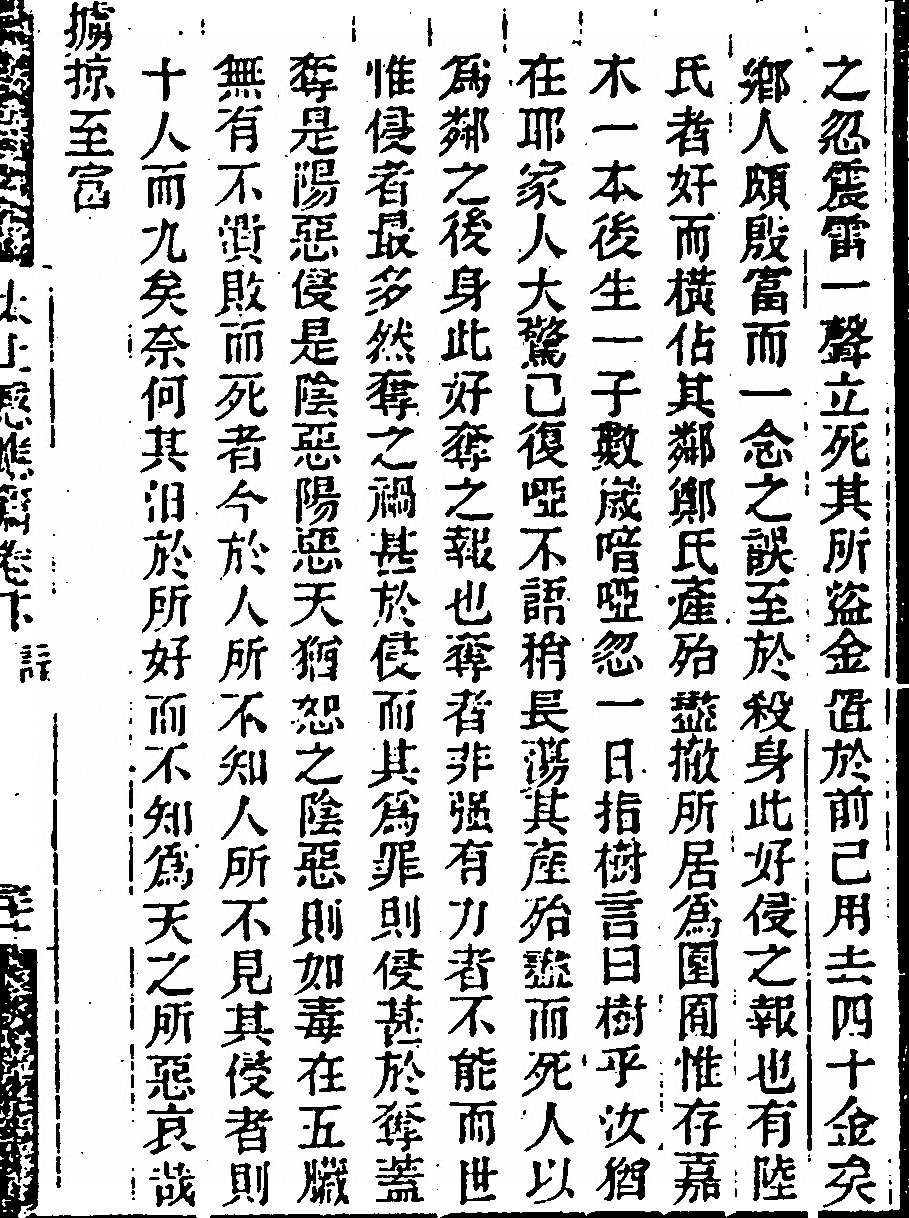 之忽震雷一聲立死其所盜金置於前已用去四十金矣
鄉人頗殷富而一念之誤至於殺身此好侵之報也有陸
氏者好而橫佔其鄰鄭氏產殆盡撤所居爲園囿惟存嘉
木一本後生一子數歲喑啞忽一日指樹言曰樹乎汝猶
在耶家人大驚已復啞不語稍長蕩其產殆盡而死人以
爲鄰之後身此好奪之報也奪者非强有力者不能而世
惟侵者最多然奪之禍甚於侵而其爲罪則侵甚於奪蓋
奪是陽惡侵是陰惡陽惡天猶恕之陰惡則如毒在五臟
無有不潰敗而死者今於人所不知人所不見其侵者則
十人而九矣奈何其汩於所好而不知爲天之所惡哀哉
擄掠至富
太上感應篇卷下
註